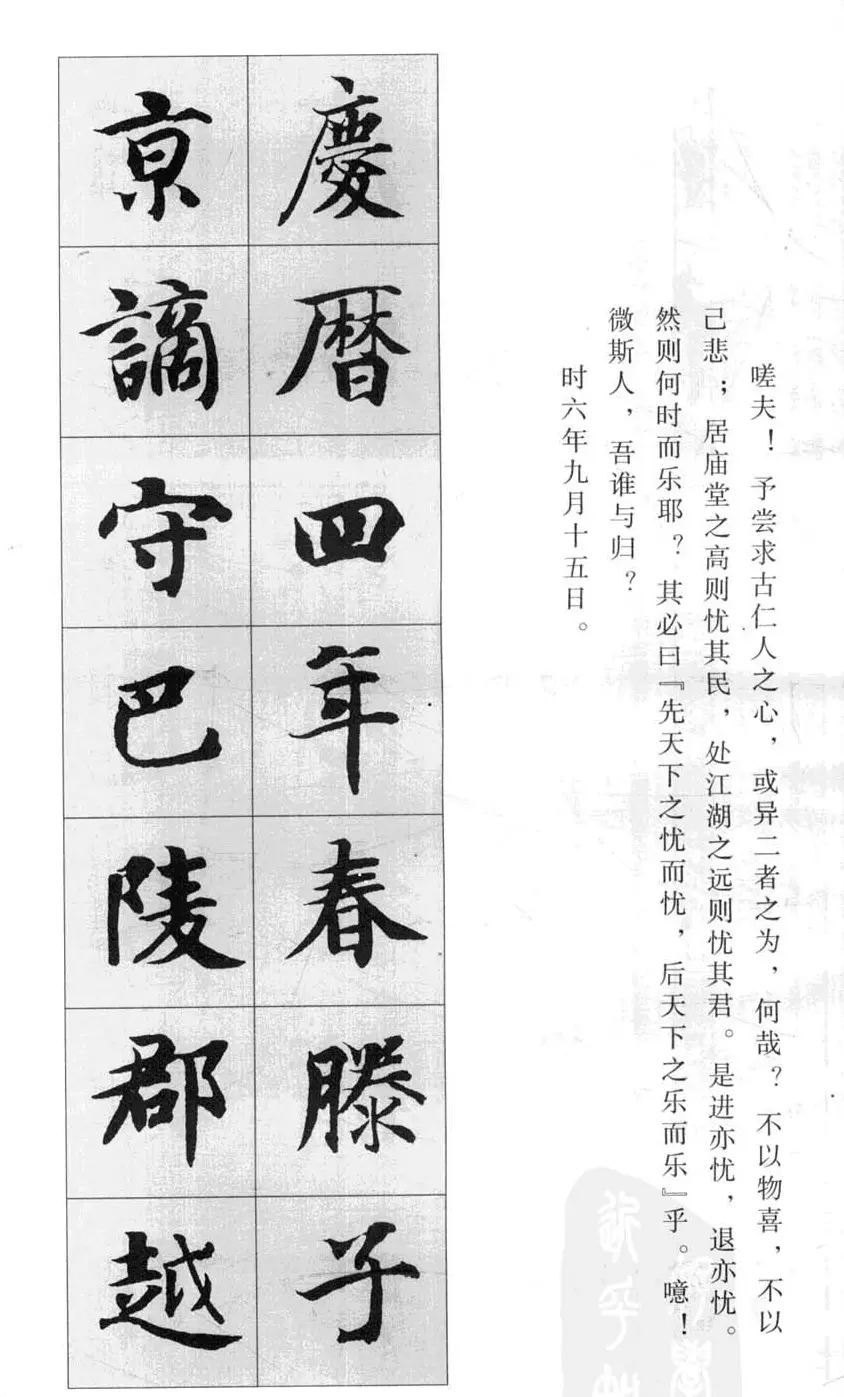 嗟夫！予尝求古仁人之心，或异二者之为，何哉？不以物喜，不以
己悲；居庙堂之高则忧其民，处江湖之远则忧其君。是进亦忧，退亦忧。
然则何时而乐耶？其必曰『先天下之忧而忧，后天下之乐而乐』乎。噫！
微斯人，吾谁与归？
时六年九月十五日。
慶暦四年春滕子
京謫守巴陵郡越